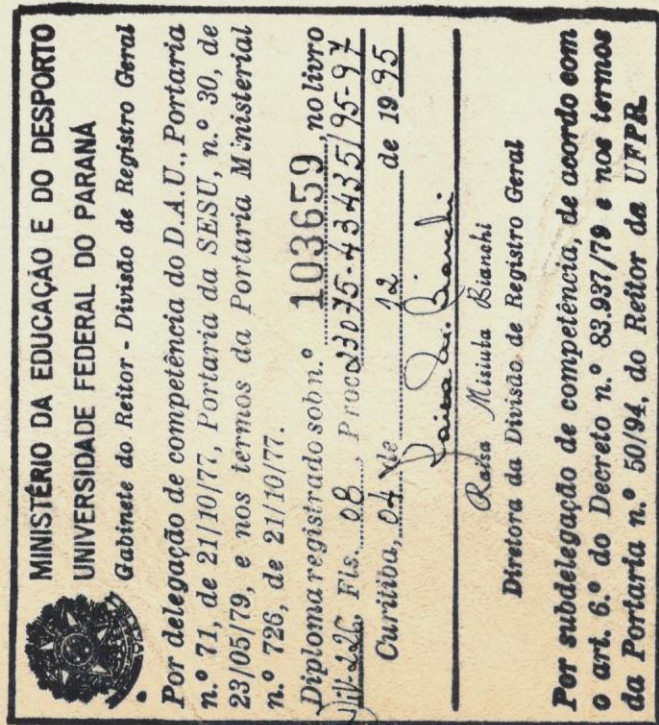 MINISTÉRIO DA EDUCAÇÃO E DO DESPORTO
UNIVERSIDADE FEDERAL DO PARANÁ
Gabinete do Reitor - Divisão de Registro Geral
Por delegação de competência do D.A.U., Portaria
n.º 71, de 21/10/77, Portaria da SESU, n.º 30, de
23/05/79, e nos termos da Portaria Ministerial
n.º 726, de 21/10/77.
Diploma registrado sob n.º 103659, no livro
Fls. 08, Proc. 23075-43435/95-97
Curitiba, 04 de 12 de 1995
Raisa M. Bianchi
Raisa Misiuta Bianchi
Diretora da Divisão de Registro Geral
Por subdelegação de competência, de acordo com
o art. 6.º do Decreto n.º 83.937/79 e nos termos
da Portaria n.º 50/94, do Reitor da UFPR.